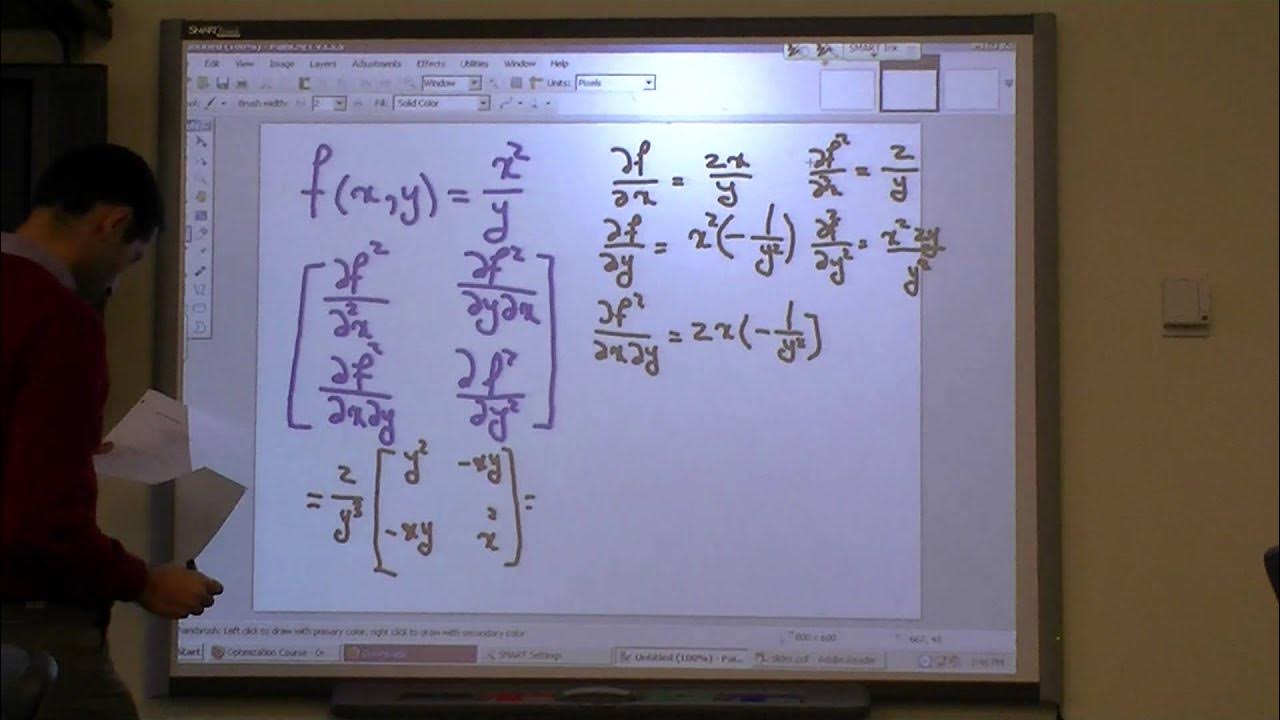 SMART
Untitled (100%) - Paint.NET v3.5.5
SMART Ink
Edit View Image Layers Adjustments Effects Utilities Window Help
Window Units: Pixels
Brush width: 2 Fill: Solid Color
f(x,y) = x²/y
[ ∂f²/∂²x ∂f²/∂y∂x
∂f²/∂x∂y ∂f²/∂y² ]
= 2/y³ [ y² -xy
-xy x² ] =
∂f/∂x = 2x/y ∂f²/∂²x = 2/y
∂f/∂y = x²(-1/y²) ∂²f/∂y² = x² 2y/y⁴
∂f²/∂x∂y = 2x(-1/y²)
Paintbrush: Left click to draw with primary color, right click to draw with secondary color
800 x 600
667, 40
Start Optimization Course - Downloads SMART Settings Untitled (100%) - Pain... slides.pdf - Adobe Reader 3:46 PM